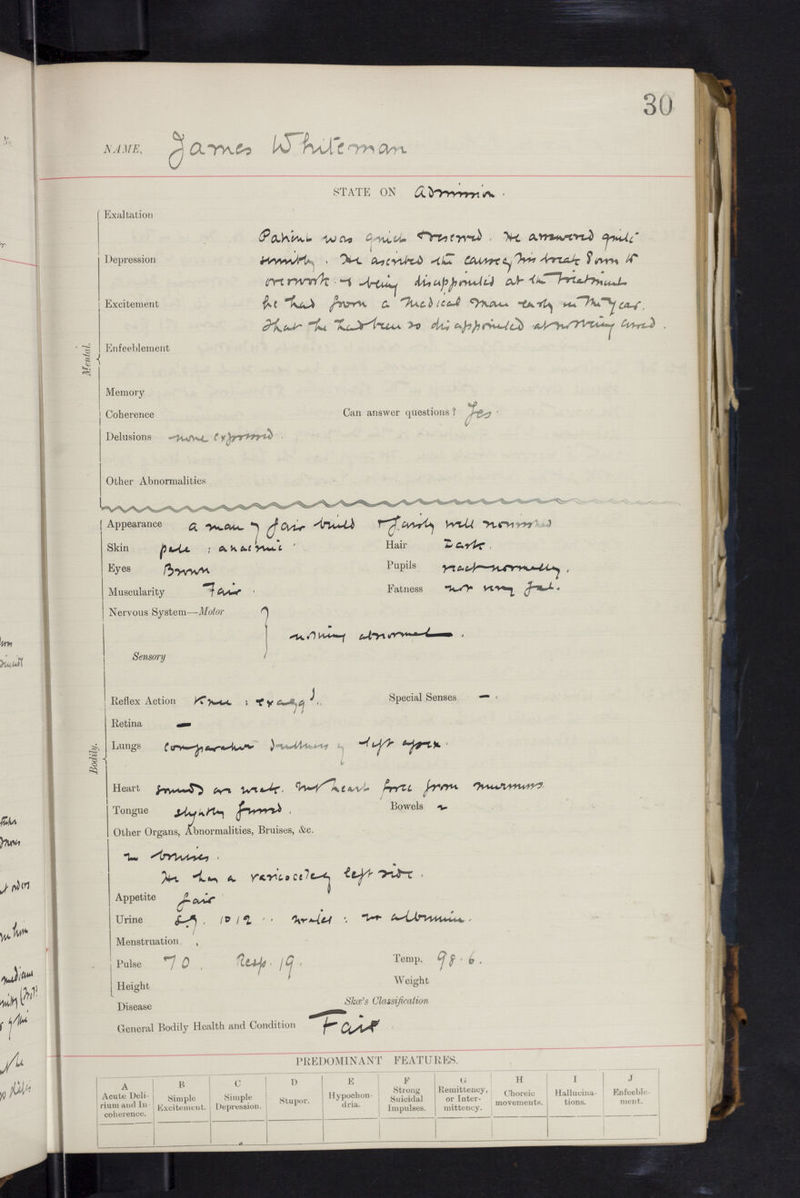 30
NAME, James Whiteman
STATE ON admission.
Exaltation
Patient was quite reserved. He answered quite
Depression sensibly. He ascribed the cause of his break down to
overwork & being disappointed at the treatment
Excitement he had from a medical man early in the year.
that he had been so disappointed at not being cured.
Enfeeblement
Mental.
Memory
Coherence Can answer questions? Yes.
Delusions none expressed.
Other Abnormalities
Appearance a man of fair build & fairly well nourished
Skin pale : anaemic Hair Dark.
Eyes Brown Pupils react normally.
Muscularity Fair. Fatness not very fat.
Nervous System—Motor
nothing abnormal.
Sensory
Reflex Action Knee : exagg. Special Senses —.
Retina —
Bodily.
Lungs Comparative dullness of left apex.
Heart sounds are weak. heart free from murmurs
Tongue slightly furred. Bowels
Other Organs, Abnormalities, Bruises, &c.
no bruises.
He has a varicocele left side.
Appetite fair
Urine 1012 no albumin.
Menstruation
Pulse 70. Resp. 19. Temp. 98.6.
Height Weight
Disease Skæ's Classification
General Bodily Health and Condition Fair
PREDOMINANT FEATURES.
A B C D E F G H I J
Acute Delirium and Incoherence. Simple Excitement. Simple Depression. Stupor. Hypochondria. Strong Suicidal Impulses. Remittency, or Intermittency. Choreic movements. Hallucinations. Enfeeblement.